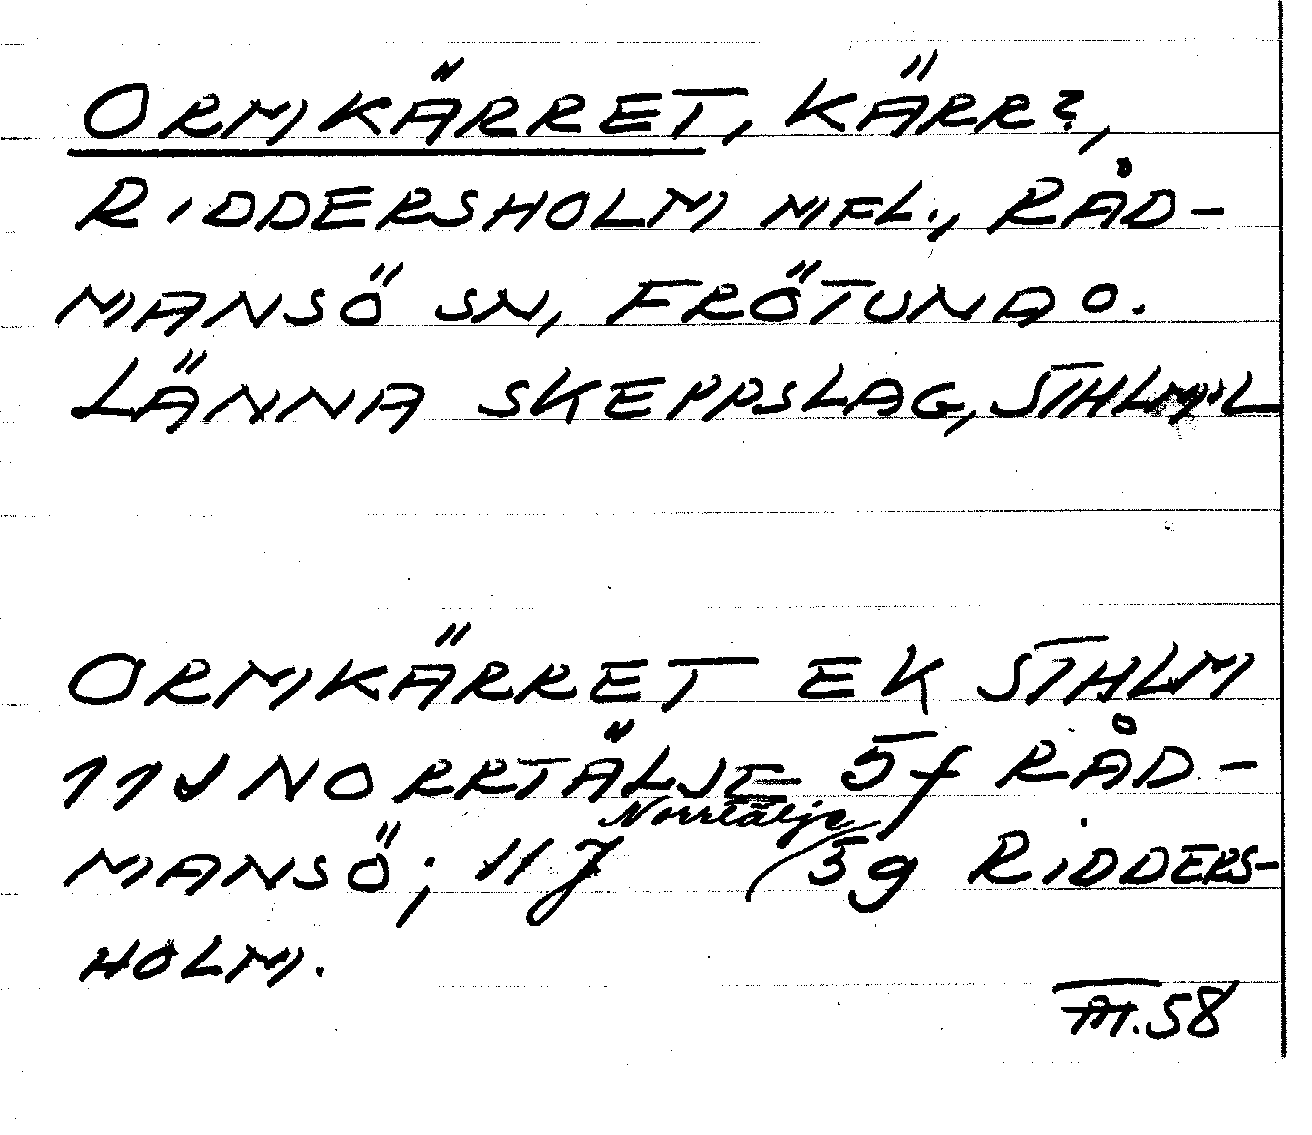 ORMKÄRRET, KÄRR?,
RIDDERSHOLM MFL., RÅD-
MANSÖ SN, FRÖTUNA O.
LÄNNA SKEPPSLAG, STHLM:L
ORMKÄRRET EK STHLM
11J NORRTÄLJE 5f RÅD-
Norrtälje
MANSÖ; 11J 5g RIDDERS-
HOLM.
58